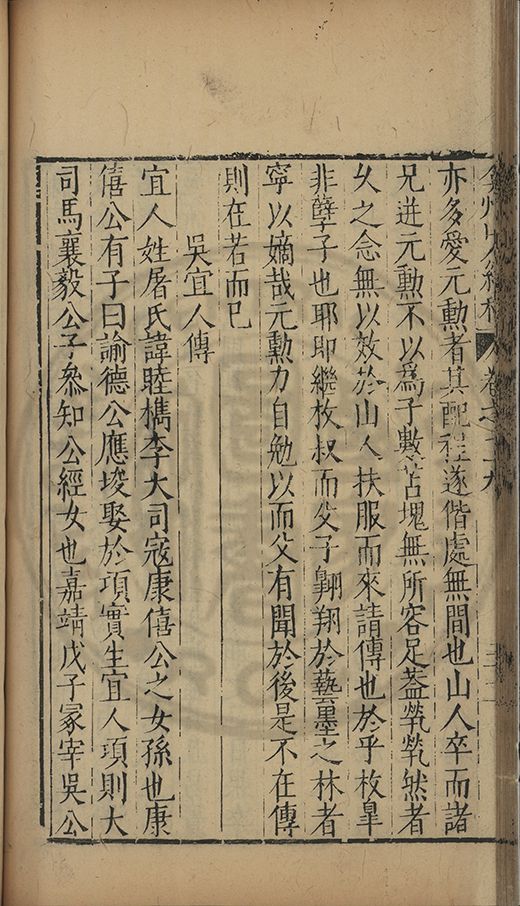 弇州山人續稿 卷之三九
亦多愛元勳者其配程遂偕處無間也山人卒而諸
兄迸元勳不以爲子數苫塊無所容足葢煢煢然者
乆之念無以效於山人扶服而來請傳也於乎枚臯
非孽子也耶即繼枚叔而父子翺翔於藝墨之林者
寧以嫡哉元勳力自勉以而父有聞於後是不在傳
則在若而已
吳宜人傳
宜人姓屠氏諱睦檇李大司寇康僖公之女孫也康
僖公有子曰諭德公應埈娶於項實生宜人項則大
司馬襄毅公子叅知公經女也嘉靖戊子冢宰吳公